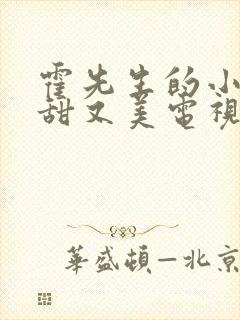 霍先生的小
甜又美電視
華盛頓—北京